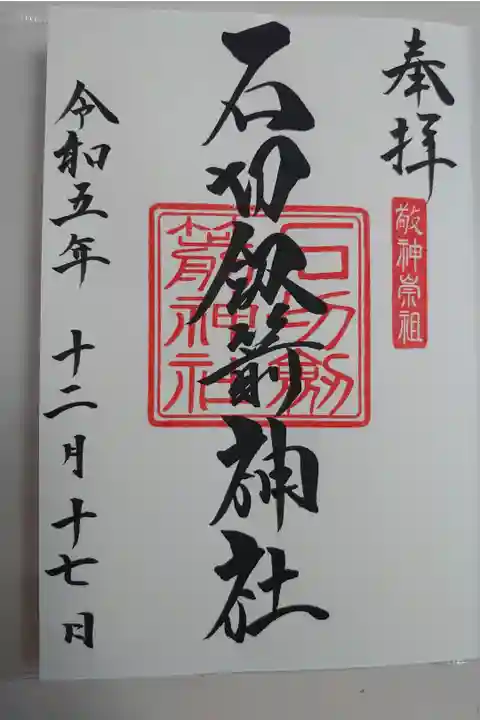 奉拝
敬神崇祖
石切剱箭神社
石切劔
箭神社
令和五年 十二月十七日